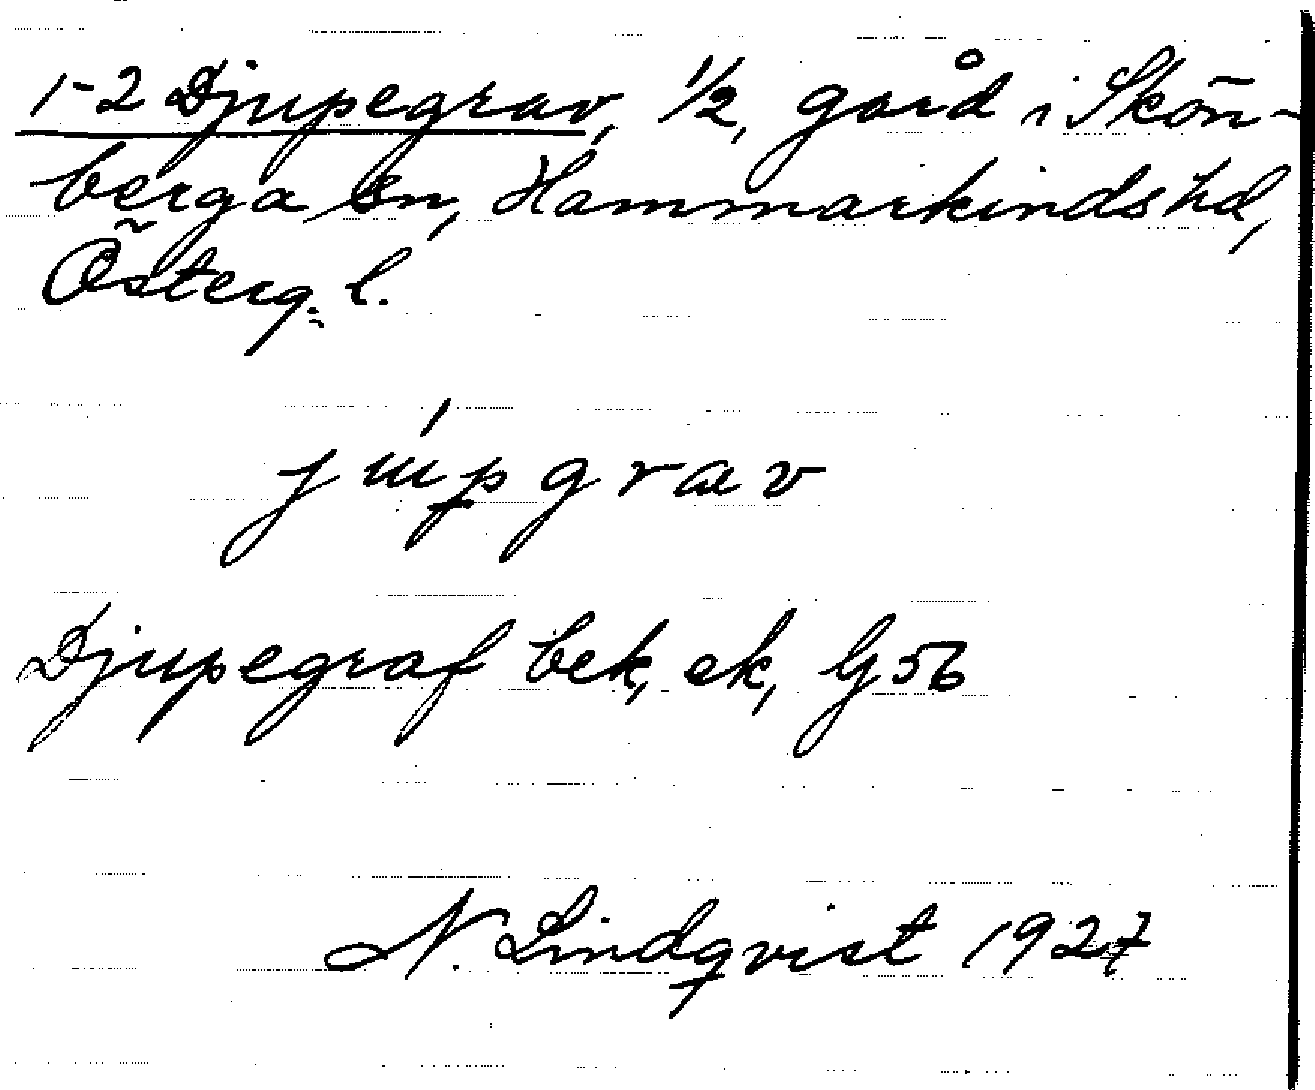 1-2 Djupegrav, 1/2, gård i Skön-
berga sn, Hammarkinds hd,
Österg. l.
júpgrav
Djupegraf bek, ek, G 56
N. Lindqvist 1927